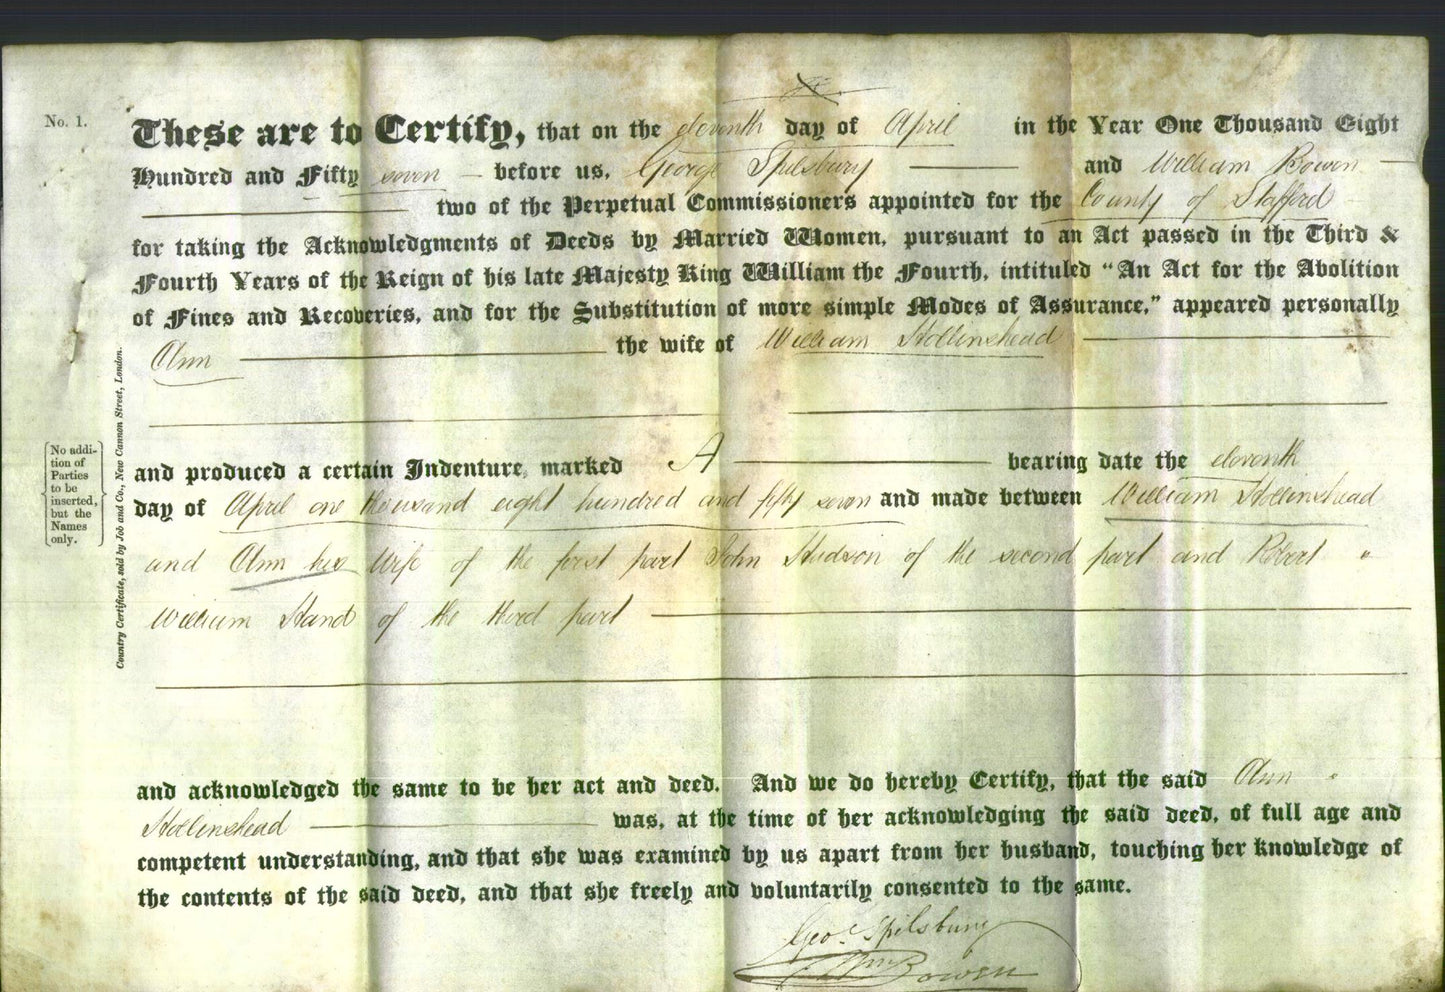 No. 1.
These are to Certify, that on the eleventh day of April in the Year One Thousand Eight
Hundred and Fifty seven before us, George Spilsbury and William Bowen
two of the Perpetual Commissioners appointed for the County of Stafford
for taking the Acknowledgments of Deeds by Married Women, pursuant to an Act passed in the Third &
Fourth Years of the Reign of his late Majesty King William the Fourth, intituled "An Act for the Abolition
of Fines and Recoveries, and for the Substitution of more simple Modes of Assurance," appeared personally
Ann the wife of William Hollinshead
and produced a certain Indenture, marked A bearing date the eleventh
day of April one thousand eight hundred and fifty seven and made between William Hollinshead
and Ann his Wife of the first part John Hudson of the second part and Robert "
William Hand of the third part
and acknowledged the same to be her act and deed. And we do hereby Certify, that the said Ann "
Hollinshead was, at the time of her acknowledging the said deed, of full age and
competent understanding, and that she was examined by us apart from her husband, touching her knowledge of
the contents of the said deed, and that she freely and voluntarily consented to the same.
Geo. Spilsbury
Wm Bowen
No addi-
tion of
Parties
to be
inserted,
but the
Names
only.
Country Certificate, sold by Job and Co., New Cannon Street, London.